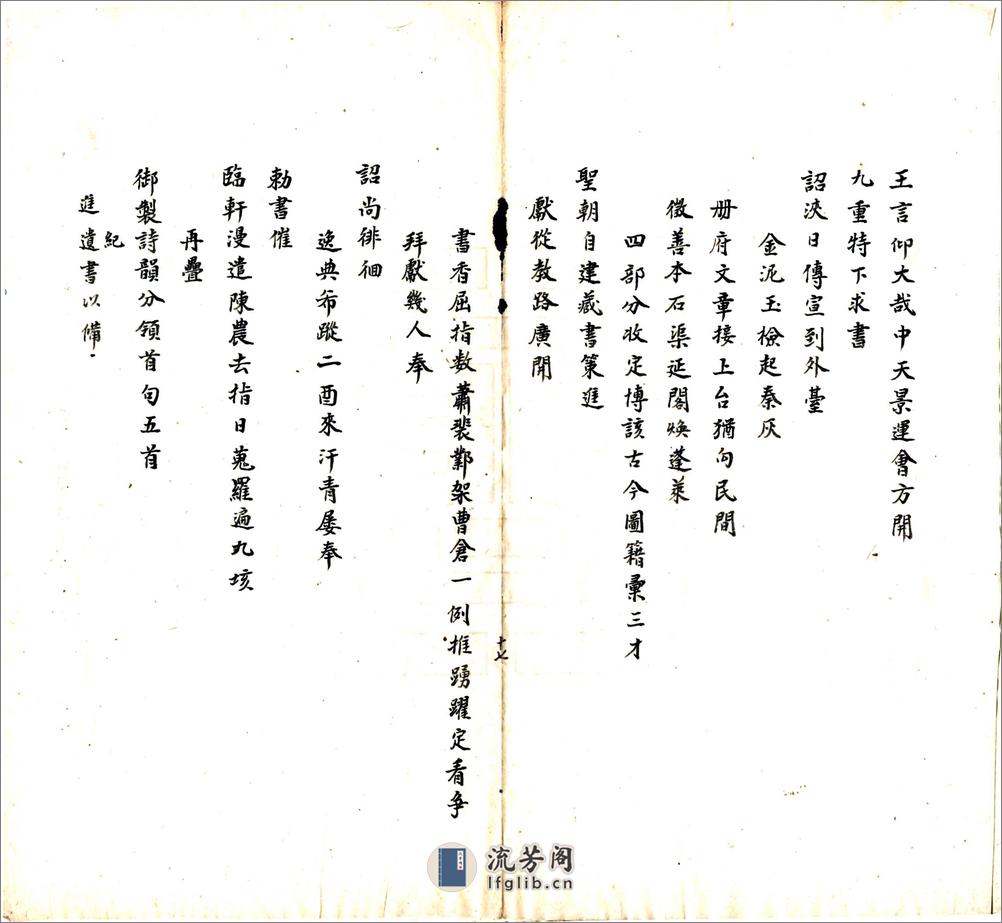 王言仰大哉中天景運會方開
九重特下求書
詔浹日傳宣到外臺
金泥玉檢起秦灰
冊府文章接上台猶向民間
徵善本石渠延閣煥蓬萊
四部分收定博該古今圖籍彙三才
聖朝自建藏書策進
獻從教路廣開
十七
書香屈指數蕭裴鄴架曹倉一例推踴躍定看爭
拜獻幾人奉
詔尚徘徊
逸典希蹤二酉來汗青屡奉
勅書催
臨軒漫遣陳農去指日蒐羅遍九垓
再疊
御製詩韻分領首句五首
紀
進遺書以備
流芳阁
lfglib.cn